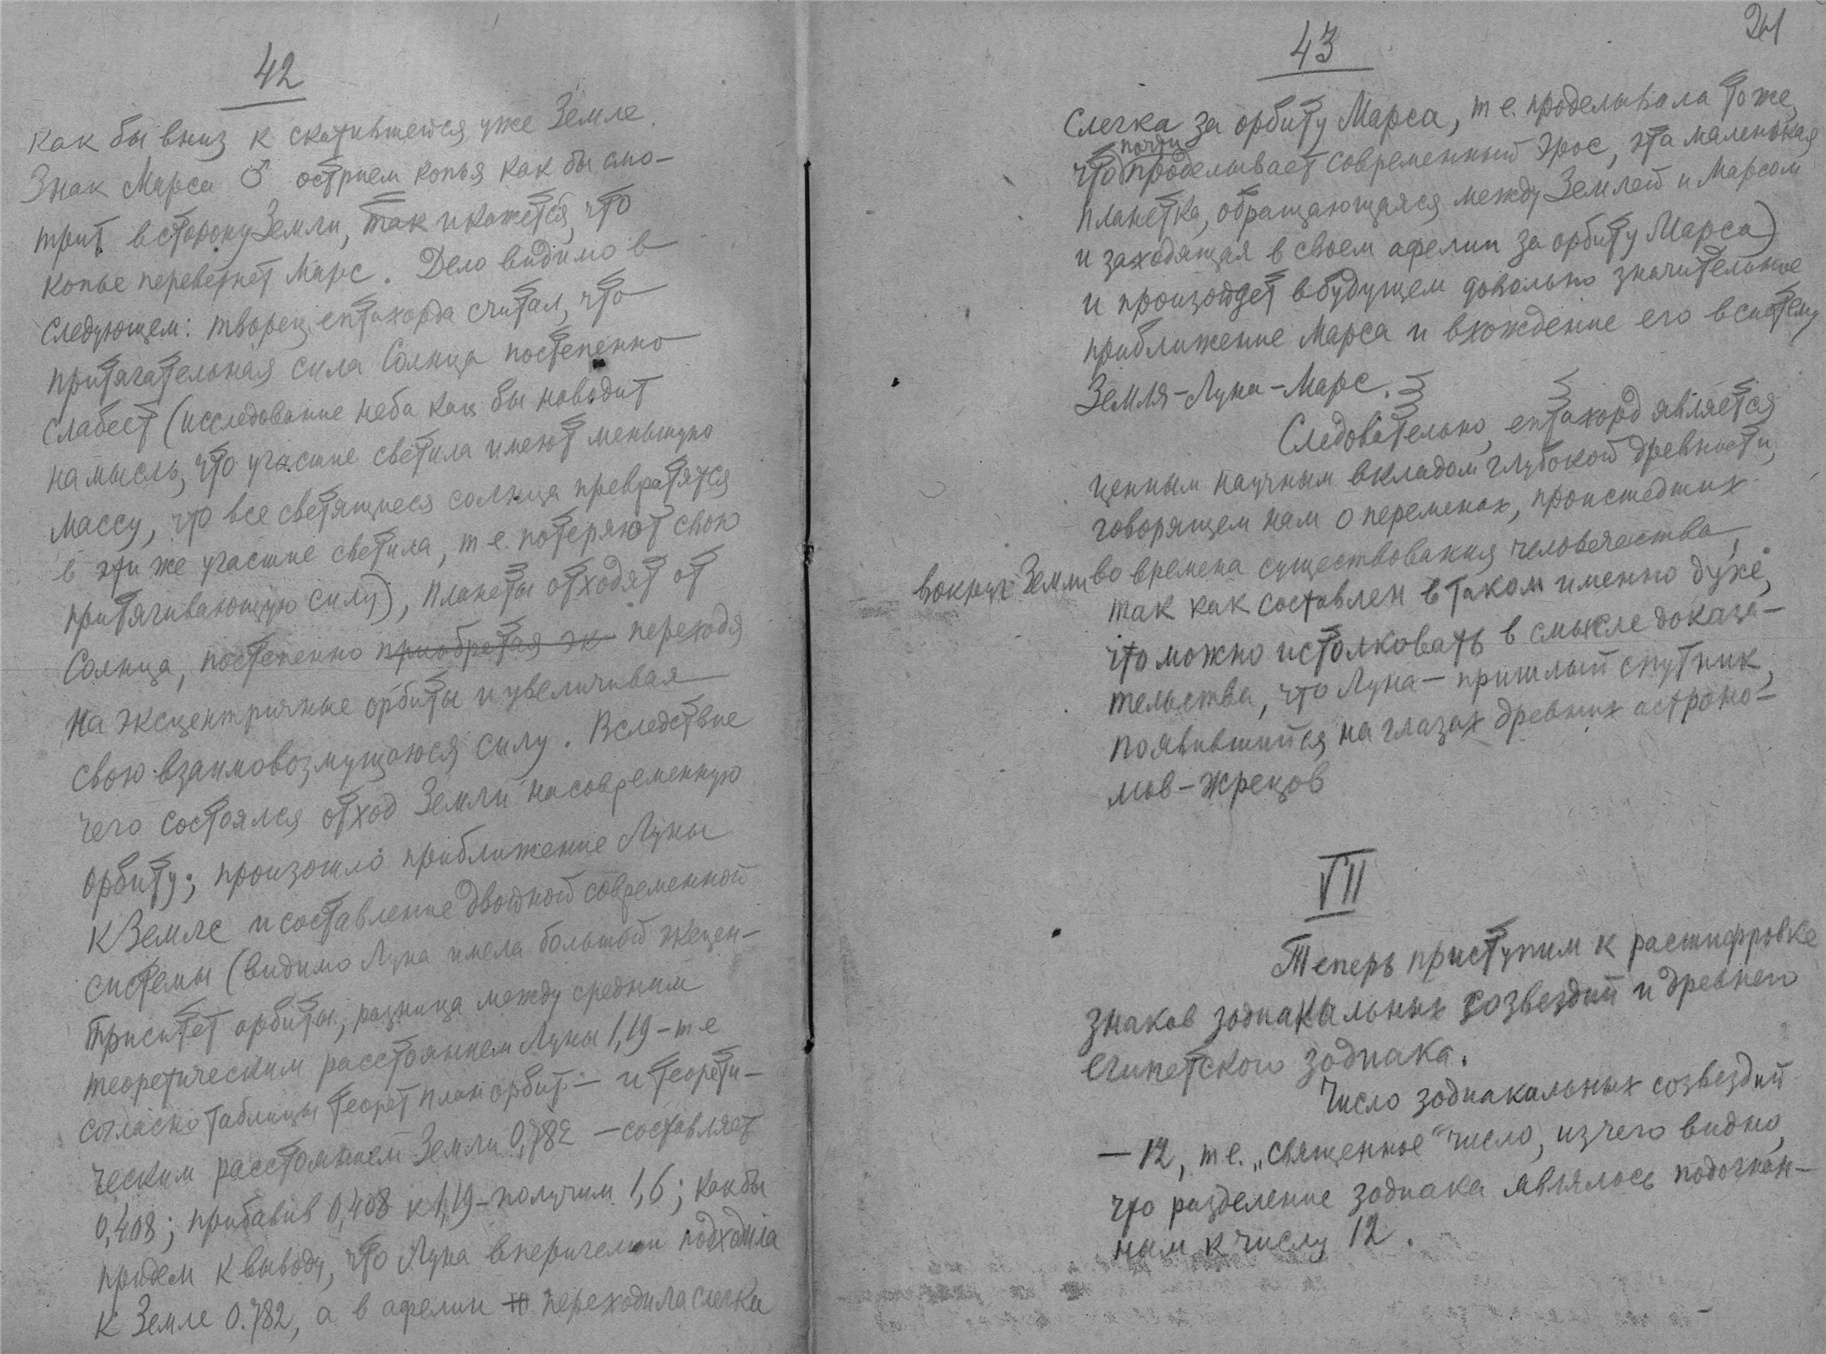 42
как бы вниз к скатившейся уже Земле.
Знак Марса ♂ острием копья как бы смо-
трит в сторону Земли, так и кажется, что
копье перевернет Марс. Дело видимо в
следующем: творец ептахорда считал, что
притягательная сила Солнца постепенно
слабеет (исследование неба как бы наводит
на мысль, что угасшие светила имеют меньшую
массу, что все светящиеся солнца превратятся
в эти же угасшие светила, т е. потеряют свою
притягивающую силу), планеты отходят от
Солнца, постепенно приобретая эк переходя
на эксцентричные орбиты и увеличивая
свою взаимовозмущающуюся силу. Вследствие
чего состоялся отход Земли на современную
орбиту; произошло приближение Луны
к Земле и составление двойной современной
системы (видимо Луна имела большой эксцен-
триситет орбиты; разница между средним
теоретическим расстоянием Луны 1,19 – т е
согласно таблицы теорет план орбит – и теорети-
ческим расстоянием Земли 0,782 – составляет
0,408; прибавив 0,408 к 1,19 – получим 1,6; как бы
придем к выводу, что Луна в перигелии подходила
к Земле 0.782, а в афелии н переходила слегка
43
21
слегка за орбиту Марса, т е. проделывала то же,
почти
что проделывает современный Эрос, эта маленькая
планетка, обращающаяся между Землей и Марсом
и заходящая в своем афелии за орбиту Марса)
и произойдет в будущем довольно значительное
приближение Марса и вхождение его в систему
Земля-Луна-Марс.
Следовательно, ептахорд является
ценным научным вкладом глубокой древности,
говорящем нам о переменах, происшедших
вокруг Земли во времена существования человечества,
так как составлен в таком именно духе,
что можно истолковать в смысле доказа-
тельства, что Луна – пришлый спутник,
появившийся на глазах древних астроно-
мов-жрецов
VII
Теперь приступим к расшифровке
знаков зодиакальных созвездий и древнего
египетского зодиака.
Число зодиакальных созвездий
– 12, т е. „священное" число, из чего видно,
что разделение зодиака являлось подогнан-
ным к числу 12.